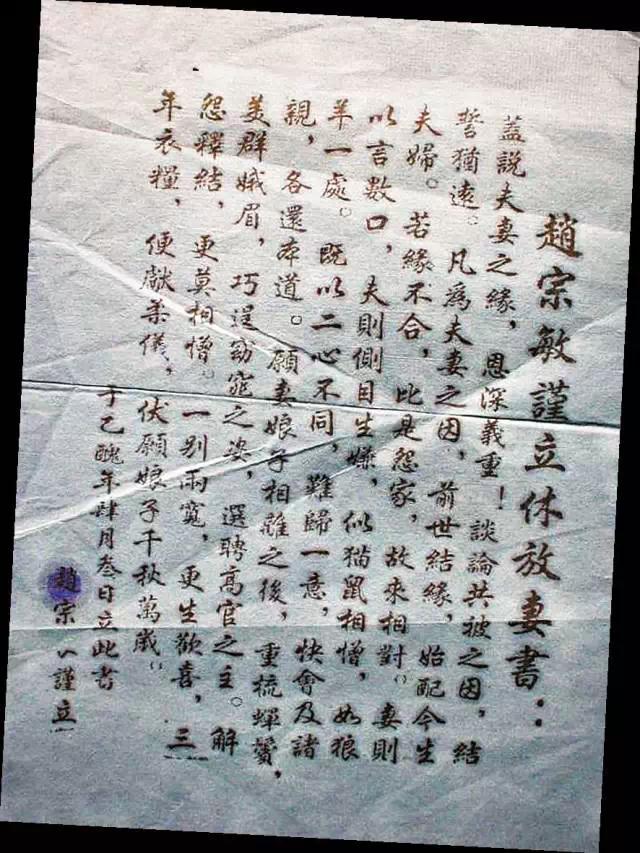 趙宗敏謹立休放妻書：
蓋説夫妻之緣，恩深義重！談論共被之因，結
誓猶遠。凡為夫妻之因，前世結緣，始配今生
夫婦。若緣不合，此是怨家，故來相對。妻則
以言數口，夫則側目生嫌，似猫鼠相憎，如狼
羊一處。既以二心不同，難歸一意，快會及諸
親，各還本道。願妻娘子相離之後，重梳蟬鬢，
美群娥眉，巧逞窈窕之姿，選聘高官之主。解
怨釋結，更莫相憎。一别兩寬，更生歡喜，三
年衣糧，便獻柔儀，伏願娘子千秋萬歲。
于己醜年肆月叁日立此書
趙宗 謹立